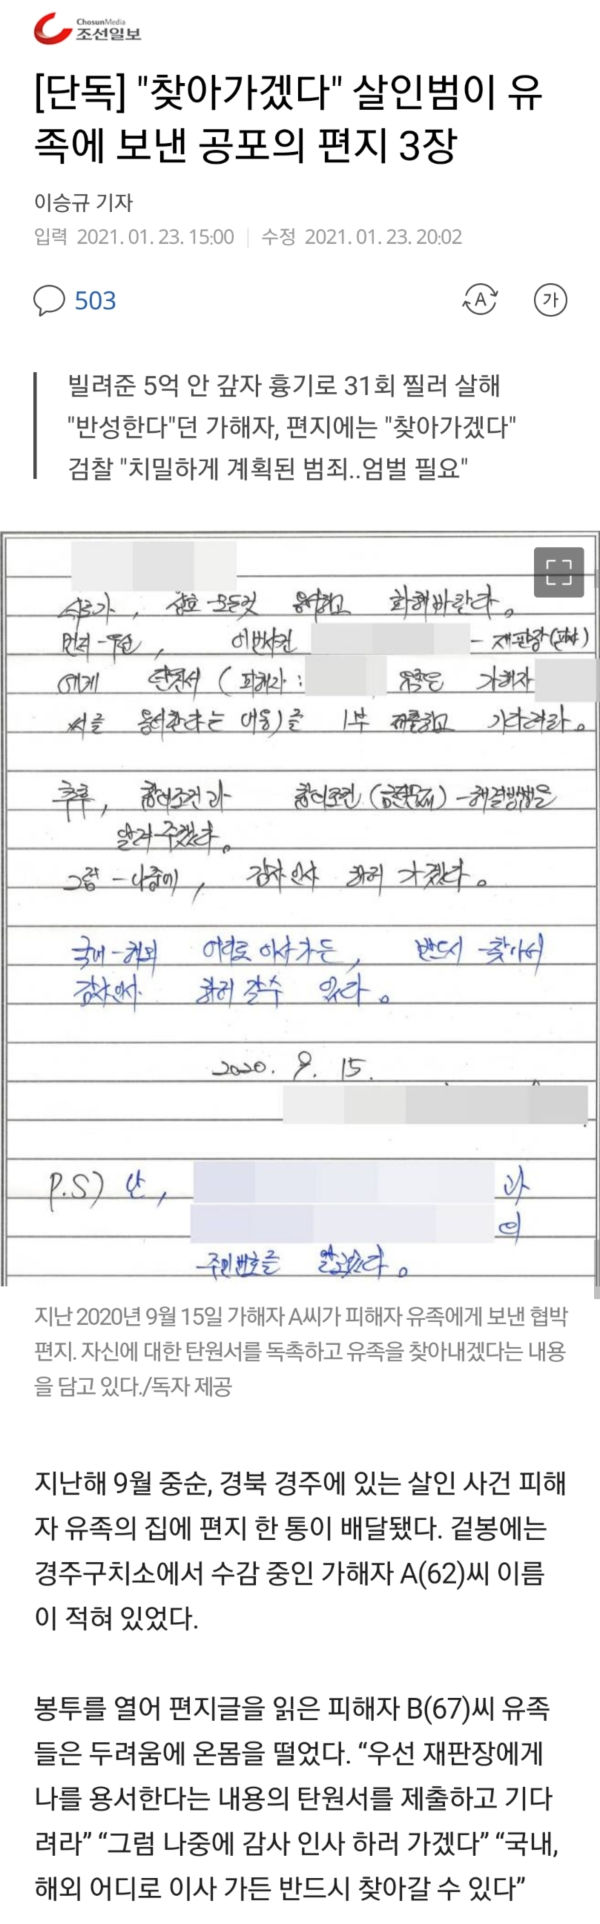 ChosunMedia
조선일보
[단독] "찾아가겠다" 살인범이 유
족에 보낸 공포의 편지 3장
이승규 기자
입력 2021. 01. 23. 15:00 | 수정 2021. 01. 23. 20:02
503
A
가
빌려준 5억 안 갚자 흉기로 31회 찔러 살해
"반성한다"던 가해자, 편지에는 "찾아가겠다"
검찰 "치밀하게 계획된 범죄..엄벌 필요"
서로가, 상호 모든것 용서하고 화해바란다.
먼저-우선, 이번사건 - 재판장(판사)
에게 탄원서 (피해자: 유족은 가해자
씨를 용서한다는 내용)을 1부 제출하고 기다려라.
추후, 합의조건과 합의조건(금전문제)-해결방법을
알려 주겠다.
그럼 -나중에, 감사인사 하러 가겠다.
국내-해외 어디로 이사가든, 반드시 -찾아서
감사인사 하러 갈수 있다.
2020. 9. 15.
P.S) 난, 과
의
주민번호를 알고있다.
지난 2020년 9월 15일 가해자 A씨가 피해자 유족에게 보낸 협박
편지. 자신에 대한 탄원서를 독촉하고 유족을 찾아내겠다는 내용
을 담고 있다./독자 제공
지난해 9월 중순, 경북 경주에 있는 살인 사건 피해
자 유족의 집에 편지 한 통이 배달됐다. 겉봉에는
경주구치소에서 수감 중인 가해자 A(62)씨 이름
이 적혀 있었다.
봉투를 열어 편지글을 읽은 피해자 B(67)씨 유족
들은 두려움에 온몸을 떨었다. “우선 재판장에게
나를 용서한다는 내용의 탄원서를 제출하고 기다
려라” “그럼 나중에 감사 인사 하러 가겠다” “국내,
해외 어디로 이사 가든 반드시 찾아갈 수 있다”